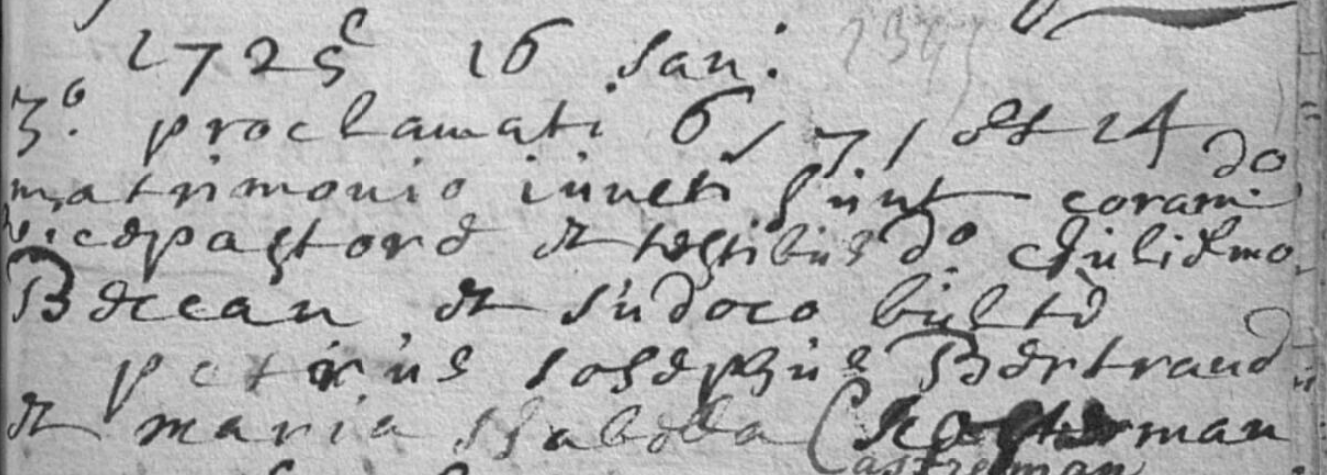 1725 16 Jan:
3.º proclamati 6, 7, et 14
matrimonio iuncti sunt coram dº
vicepastore et testibus dº Guilielmo
Beccan et Judoco
petrus Josephus Bertrand
et maria Isabella (Kasterman
Castreman